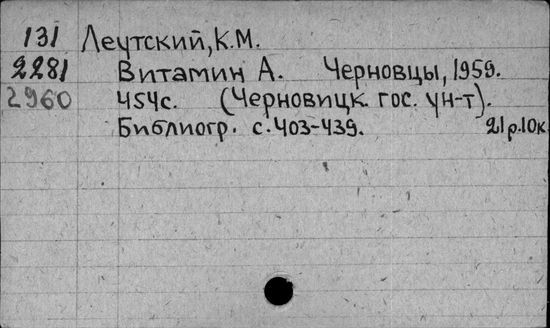 131 Леутский, К.М.
2281 Витамин А. Черновцы, 1959.
2960 454с. (Черновицк. гос. ун-т).
Библиогр. с. 403-439. 21р.10к